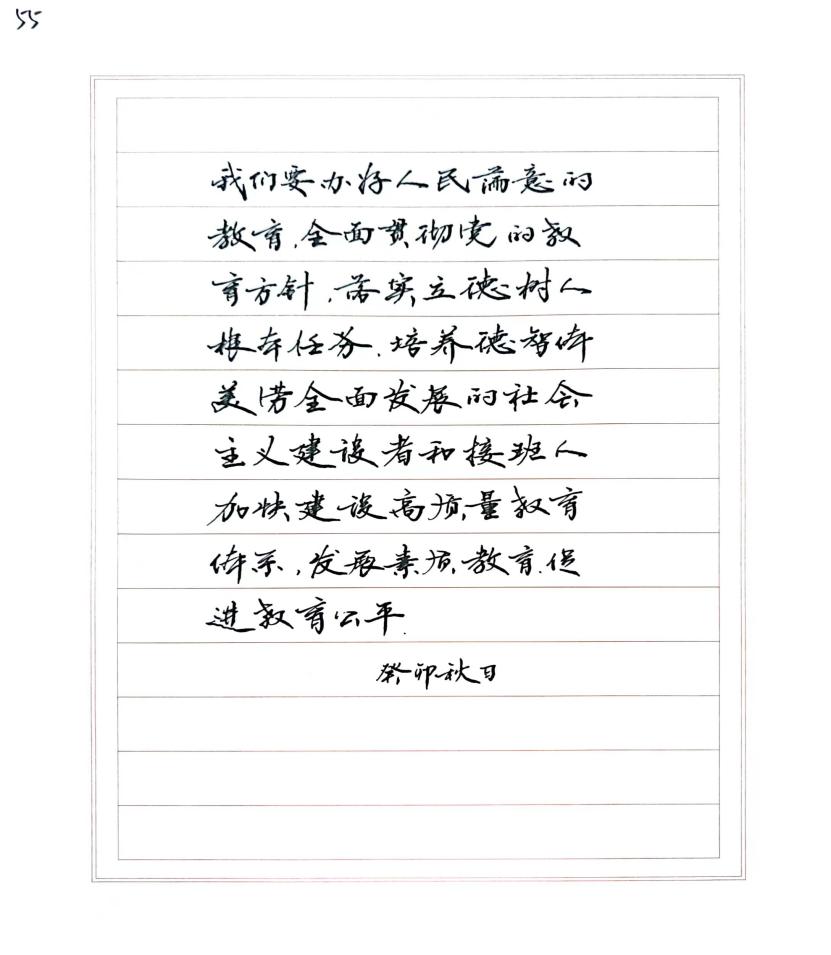 55
我们要办好人民满意的
教育,全面贯彻党的教
育方针,落实立德树人
根本任务,培养德智体
美劳全面发展的社会
主义建设者和接班人
加快建设高质量教育
体系,发展素质教育,促
进教育公平.
癸卯秋日